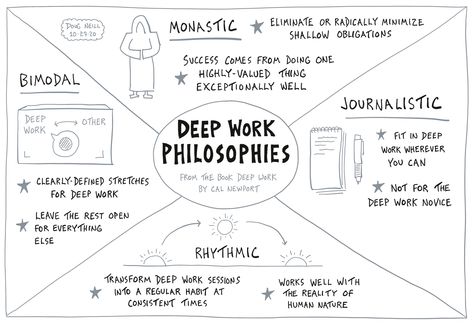 DOUG NEILL
10·27·20
MONASTIC
ELIMINATE OR RADICALLY MINIMIZE
SHALLOW OBLIGATIONS
SUCCESS COMES FROM DOING ONE
HIGHLY-VALUED THING
EXCEPTIONALLY WELL
BIMODAL
DEEP
WORK
OTHER
CLEARLY-DEFINED STRETCHES
FOR DEEP WORK
LEAVE THE REST OPEN
FOR EVERYTHING
ELSE
DEEP WORK
PHILOSOPHIES
FROM THE BOOK DEEP WORK
BY CAL NEWPORT
JOURNALISTIC
FIT IN DEEP
WORK WHEREVER
YOU CAN
NOT FOR THE
DEEP WORK NOVICE
RHYTHMIC
TRANSFORM DEEP WORK SESSIONS
INTO A REGULAR HABIT AT
CONSISTENT TIMES
WORKS WELL WITH
THE REALITY OF
HUMAN NATURE